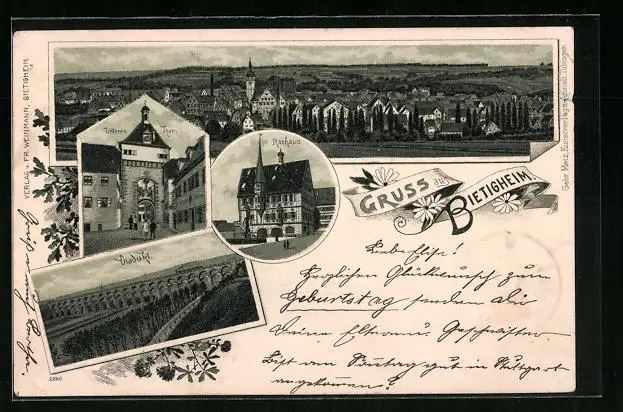 VERLAG v. FR. WEINMANN, BIETIGHEIM
Unteres Thor.
Rathhaus
Viadukt.
GRUSS aus
BIETIGHEIM
Gebr. Metz, Kunstverlagsanstalt, Tübingen
Liebe Elise!
Herzlichen Glückwunsch zum
Geburtstag senden dir
Deine Eltern u. Geschwister.
Bist am Sonntag gut in Stuttgart
angekommen?
2260